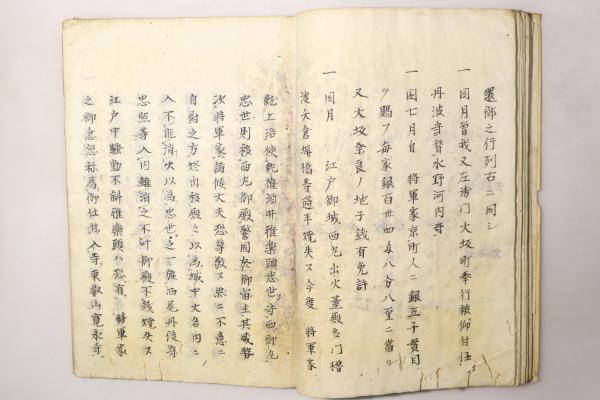 還御之行列右ニ同シ
一 同月曽我又左衛門大坂町奉行被仰付任
丹波守督水野河内守
一 同七月自 将軍家京町人ニ銀五千貫目
ヲ賜フ毎家銀百廿四匁八分八至ニ當ル
又大坂奈良ノ地子銭有免許
一 同月 江戸御城西丸出火臺殿多門櫓
過半焼失ス今度 将軍家
就上洛使 酒井雅楽頭忠世守西御丸
忠世則移西丸御殿 於御留主其威勢
次将軍家諸候大夫恐尊敬ス 不意ニ
自厨之方炎出移殿々以為城中大名内ニ
入不能消火以為忠世之一族西尾丹後守
忠照等入内雖消之不叶御殿不銭焼失ス
江戸中騒動不斜雅楽頭ハ恐有 将軍家
之御忿怒 為御仕 入寺東叡山寛永寺